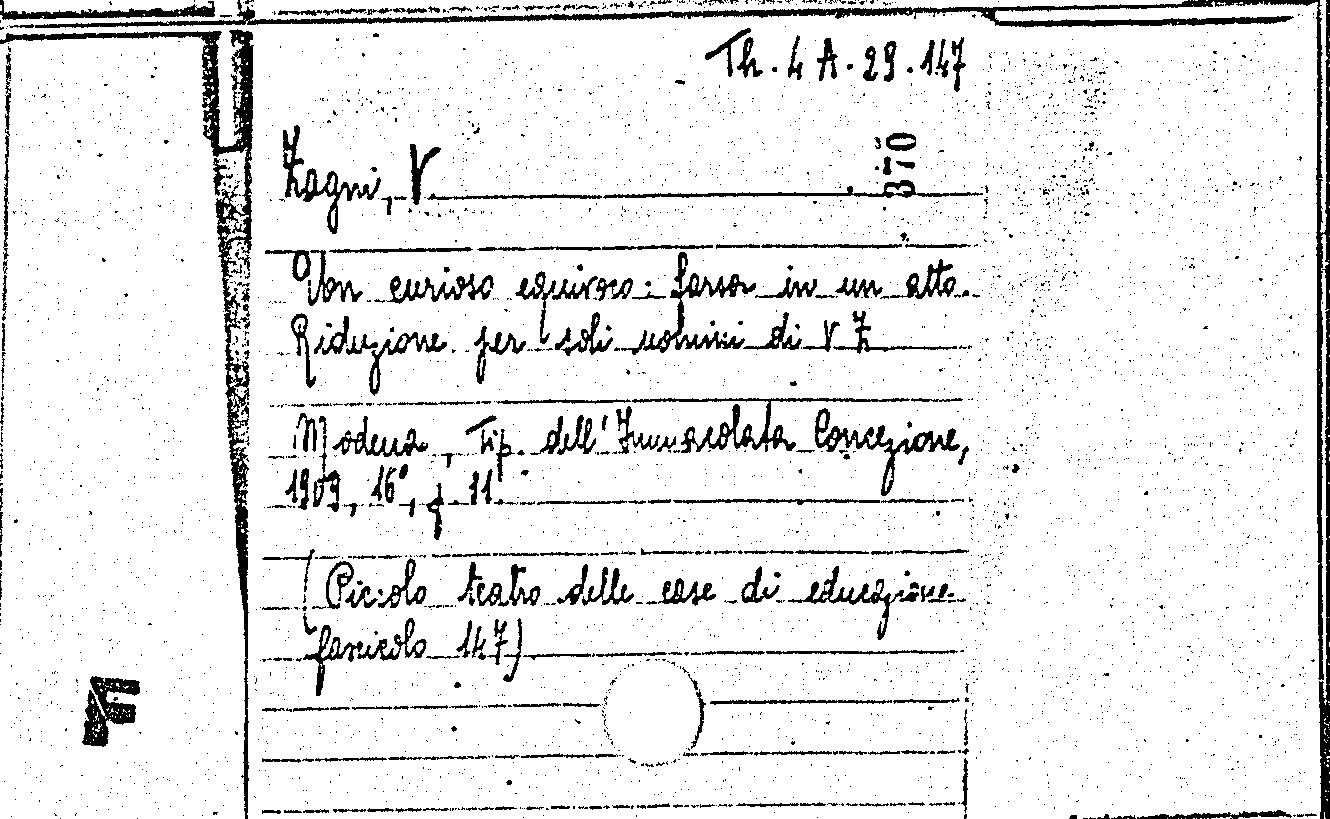 Th. 4 A. 29. 147
370
Zagni, V.
Von curioso equivoco: farsa in un atto.
Riduzione per soli uomini di V Z
Modena, Tip. dell'Immacolata Concezione,
1909, 16°, p. 31.
(Piccolo teatro delle case di educazione
fascicolo 147)
F